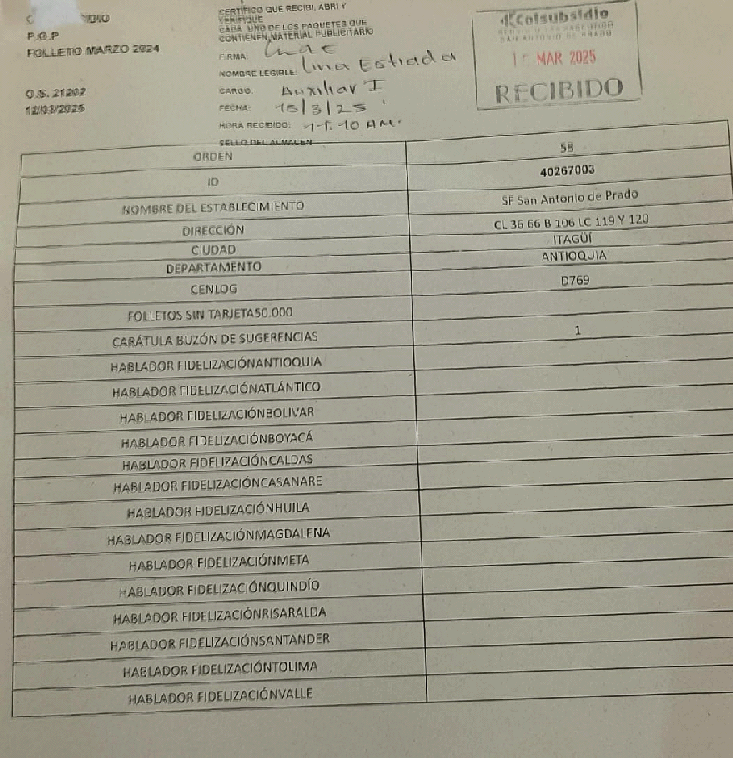 P.O.P
FOLLETO MARZO 2024
O.S. 21207
12/03/2025
CERTIFICO QUE RECIBI, ABRI Y
VERIFIQUE
CADA UNO DE LOS PAQUETES QUE
CONTIENEN MATERIAL PUBLICITARIO
FIRMA:
NOMBRE LEGIBLE: Lina Estrada
CARGO: Auxiliar I
FECHA: 15/3/25
HORA RECIBIDO: 10 AM.
SELLO DEL ALMACEN
Colsubsidio
SAN ANTONIO DE PRADO
MAR 2025
RECIBIDO
ORDEN 58
ID 40267003
NOMBRE DEL ESTABLECIMIENTO SF San Antonio de Prado
DIRECCIÓN CL 36 66 B 106 LC 119 Y 120
CIUDAD ITAGÜÍ
DEPARTAMENTO ANTIOQUIA
CENLOG D769
FOLLETOS SIN TARJETA50.000
CARÁTULA BUZÓN DE SUGERENCIAS 1
HABLADOR FIDELIZACIÓNANTIOQUIA
HABLADOR FIDELIZACIÓNATLÁNTICO
HABLADOR FIDELIZACIÓNBOLIVAR
HABLADOR FIDELIZACIÓNBOYACÁ
HABLADOR FIDELIZACIÓNCALDAS
HABLADOR FIDELIZACIÓNCASANARE
HABLADOR FIDELIZACIÓNHUILA
HABLADOR FIDELIZACIÓNMAGDALENA
HABLADOR FIDELIZACIÓNMETA
HABLADOR FIDELIZACIÓNQUINDÍO
HABLADOR FIDELIZACIÓNRISARALDA
HABLADOR FIDELIZACIÓNSANTANDER
HABLADOR FIDELIZACIÓNTOLIMA
HABLADOR FIDELIZACIÓNVALLE